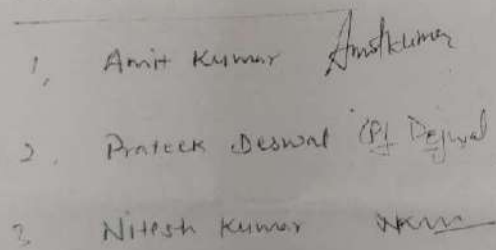 1, Amit Kumar Amitkumar
2. Prateek Deswal Deswal
3 Nitesh Kumar